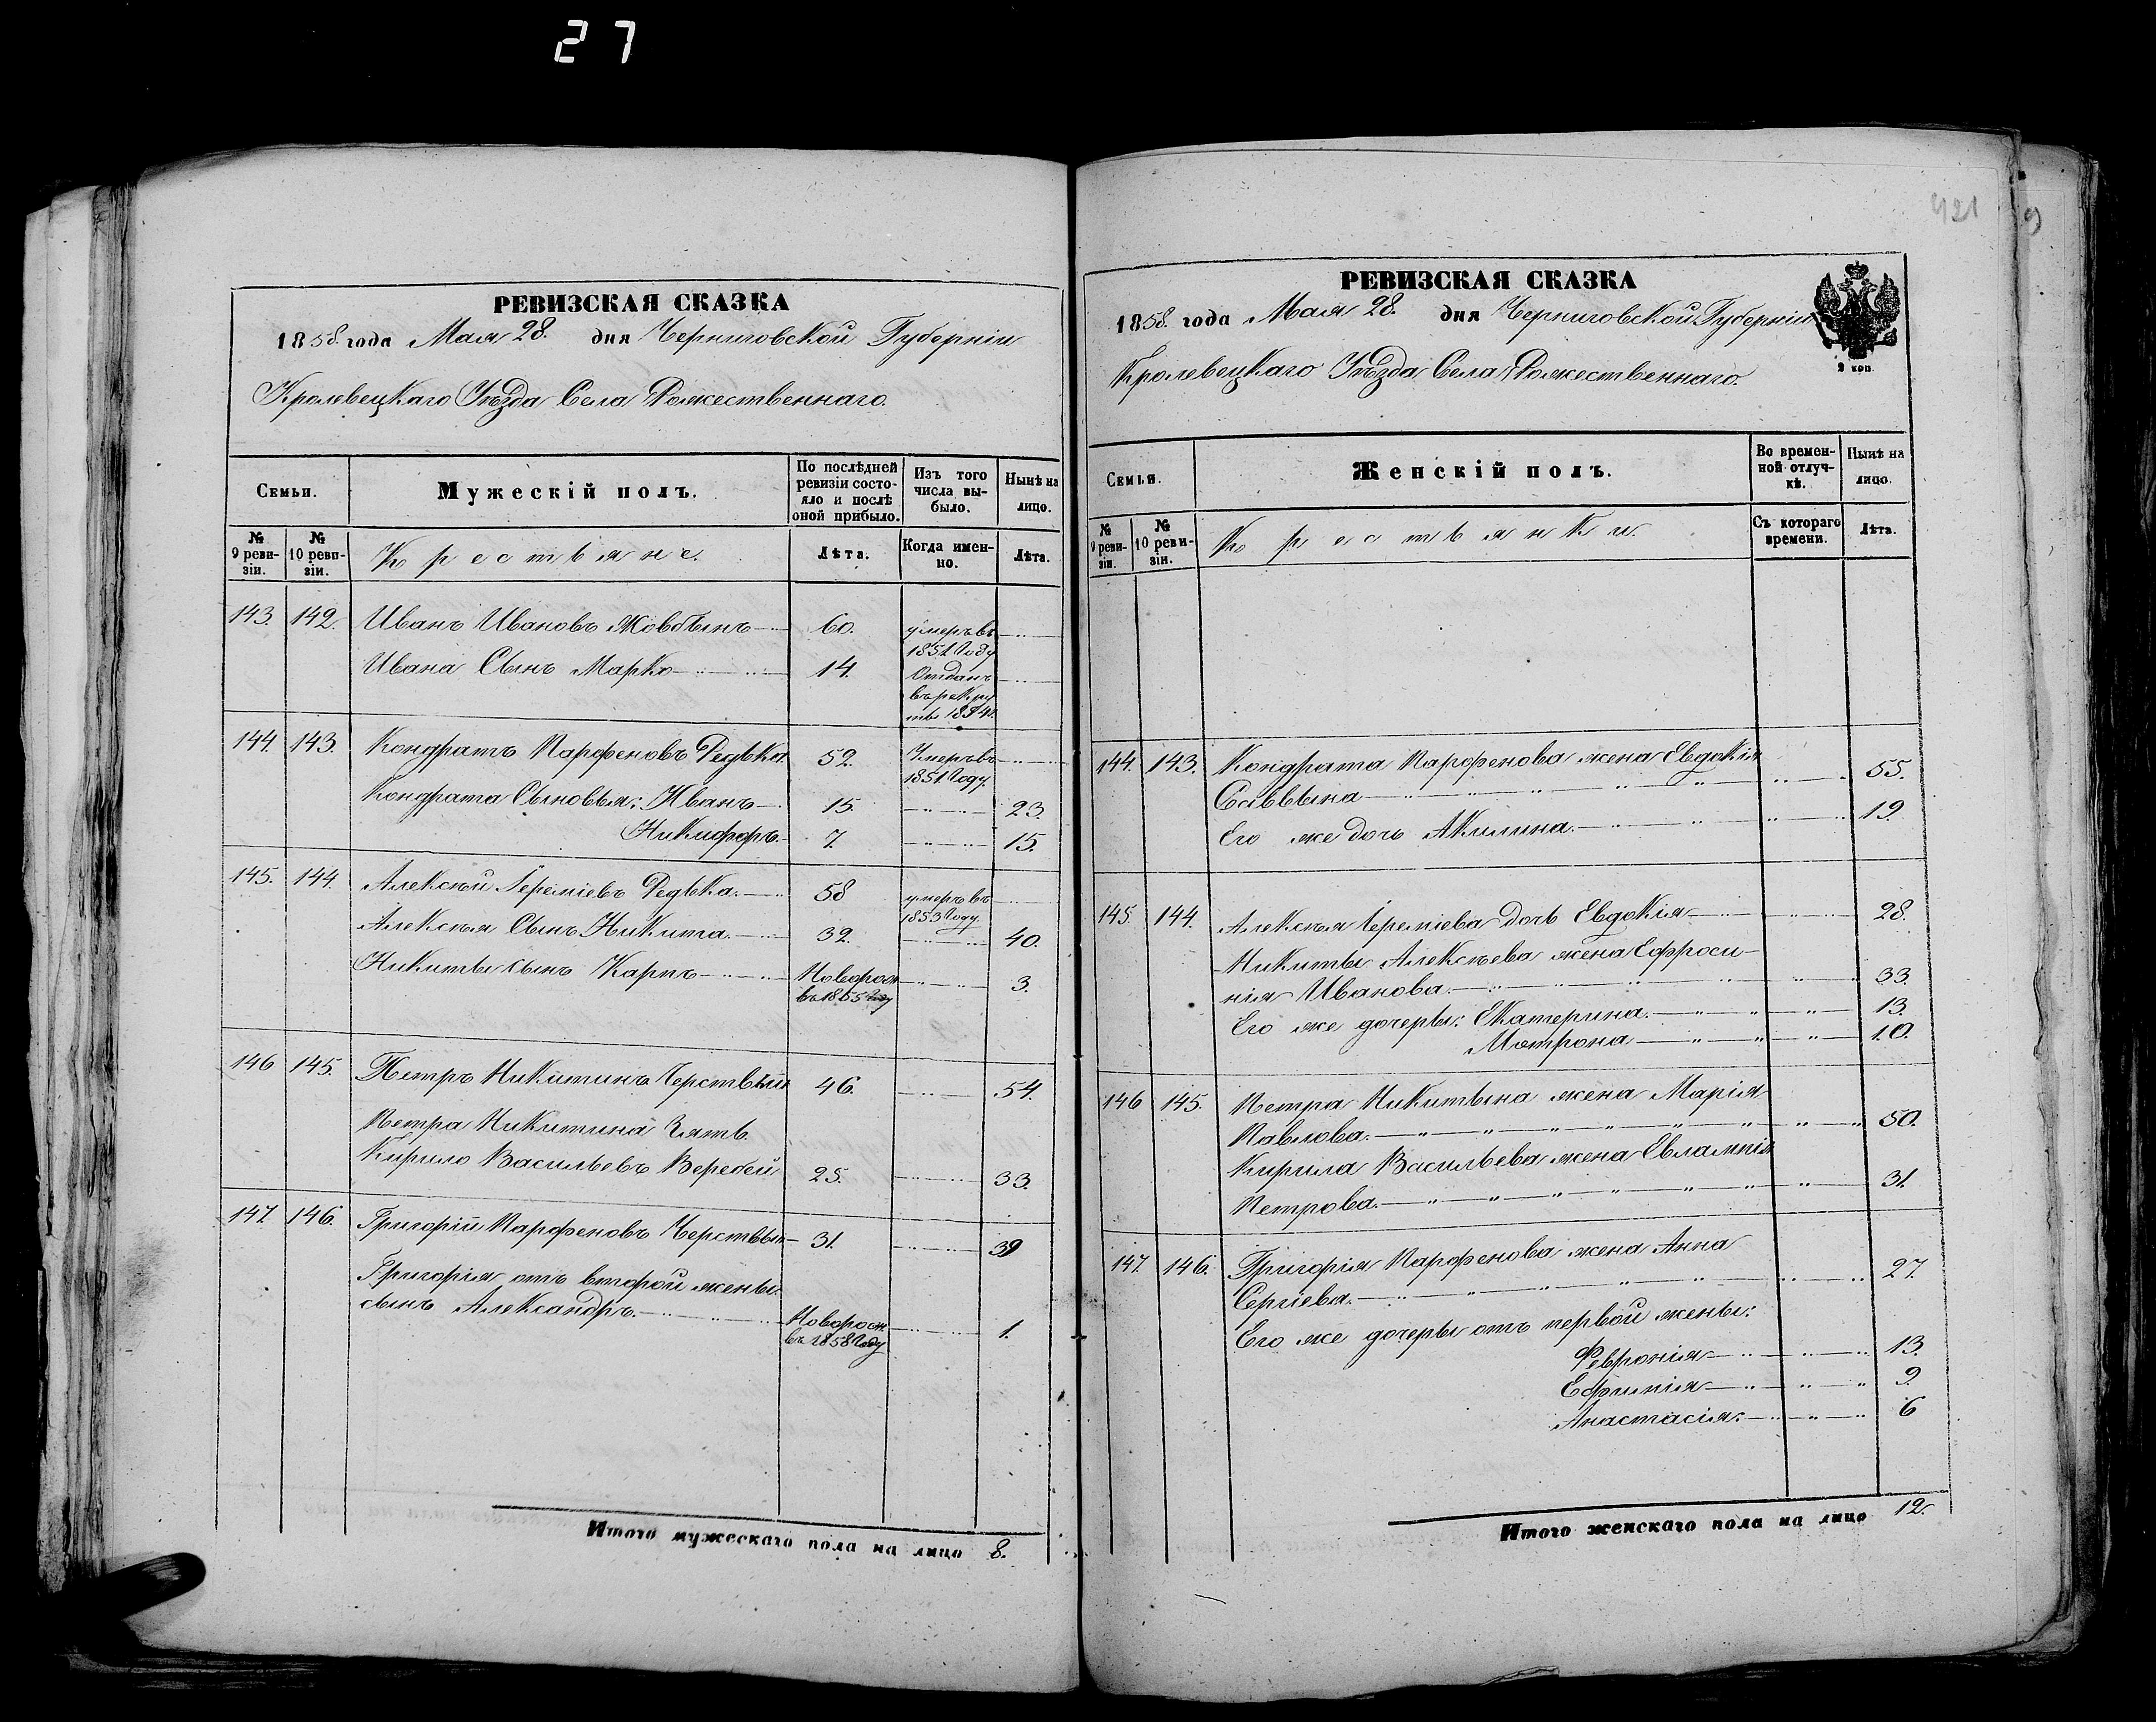 27
421
РЕВИЗСКАЯ СКАЗКА
1858. года Мая 28. дня Черниговской Губерніи
Кролевецкаго Уѣзда Села Рожественнаго.
Семьи.
Мужескій полъ.
По послѣдней ревизіи состояло и послѣ оной прибыло.
Изъ того числа выбыло.
Нынѣ на лицо.
№ 9 ревизіи.
№ 10 ревизіи.
Крестьяне.
Лѣта.
Когда именно.
Лѣта.
143. 142. Иванъ Ивановъ Жовбынъ 60. умеръ въ 1851 году
Ивана Сынъ Марко 14. Отданъ въ рекруты 1854.
144. 143. Кондратъ Парфеновъ Редька. 52. Умеръ въ 1851 году.
Кондрата Сыновья: Иванъ 15. 23.
Никифоръ. 7. 15.
145. 144. Алексѣй Іереміевъ Редька. 58 умеръ въ 1853 году.
Алексѣя Сынъ Никита. 32. 40.
Никиты сынъ Карпъ Новорож въ 1855 году 3.
146 145. Петръ Никитинъ Черствый 46. 54.
Петра Никитина Зять
Кирило Васильевъ Веребей 25. 33.
147. 146. Григорій Парфеновъ Черствый 31. 39
Григорія отъ второй жены
сынъ Александръ. Новорож въ 1858 году 1.
Итого мужескаго пола на лицо 8.
РЕВИЗСКАЯ СКАЗКА
1858. года Мая 28. дня Черниговской Губерніи
2 коп.
Кролевецкаго Уѣзда Села Рожественнаго.
Семьи.
Женскій полъ.
Во временной отлучкѣ.
Нынѣ на лицо.
№ 9 ревизіи.
№ 10 ревизіи.
Крестьянки.
Съ котораго времени.
Лѣта.
144. 143. Кондрата Парфенова жена Евдокія
Саввына 55.
Его же дочь Акилина. 19.
145. 144. Алексѣя Іереміева дочь Евдокія 28.
Никиты Алексѣева жена Ефроси-
нія Иванова. 33.
Его же дочеры: Екатерина. 13.
Мотрона 10.
146 145. Петра Никитына жена Марія
Павлова. 50.
Кирила Васильева жена Евлампія
Петрова. 31.
147. 146. Григорія Парфенова жена Анна
Сергіева. 27.
Его же дочеры отъ первой жены:
Февронія 13.
Ефимія 9.
Анастасія. 6
Итого женскаго пола на лицо 12.